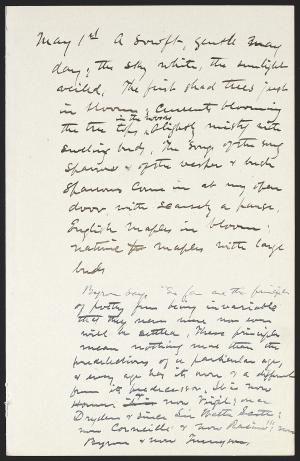 May 1st A soft, gentle May
day; the sky white, the sunlight
veiled. The first shad trees just
in bloom; Currents blooming
in the woods
the tree tops, slightly misty with
swelling buds. The songs of the song
sparrow & of the vesper & bush
sparrows come in at my open
door with scarcely a pause.
English maples in bloom;
native maples with large
buds
Byron says, "So far are the principles
of poetry from being invariable
that they never were nor ever
will be settled. These principles
mean nothing more than the
predilections of a particular age,
& every age has its own & a different
from its predecessor. It is now
Homer now Virgil; once
Dryden & since Sir Walter Scott;
now Corneille & now Racine"; now
Byron & now Tennyson.